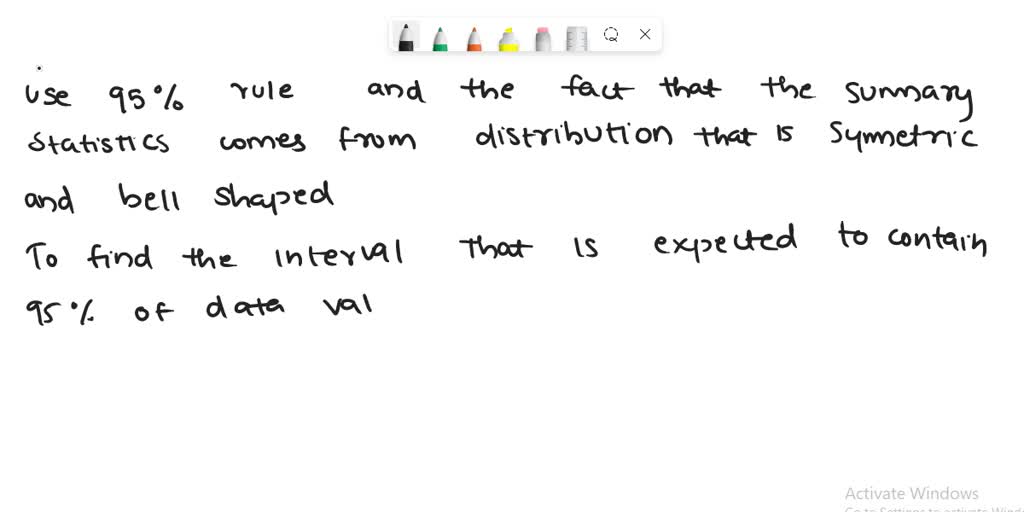 use 95% rule and the fact that the summary
statistics comes from distribution that is symmetric
and bell shaped
To find the interval that is expected to contain
95% of data val
Activate Windows
Go to Settings to activate Wind